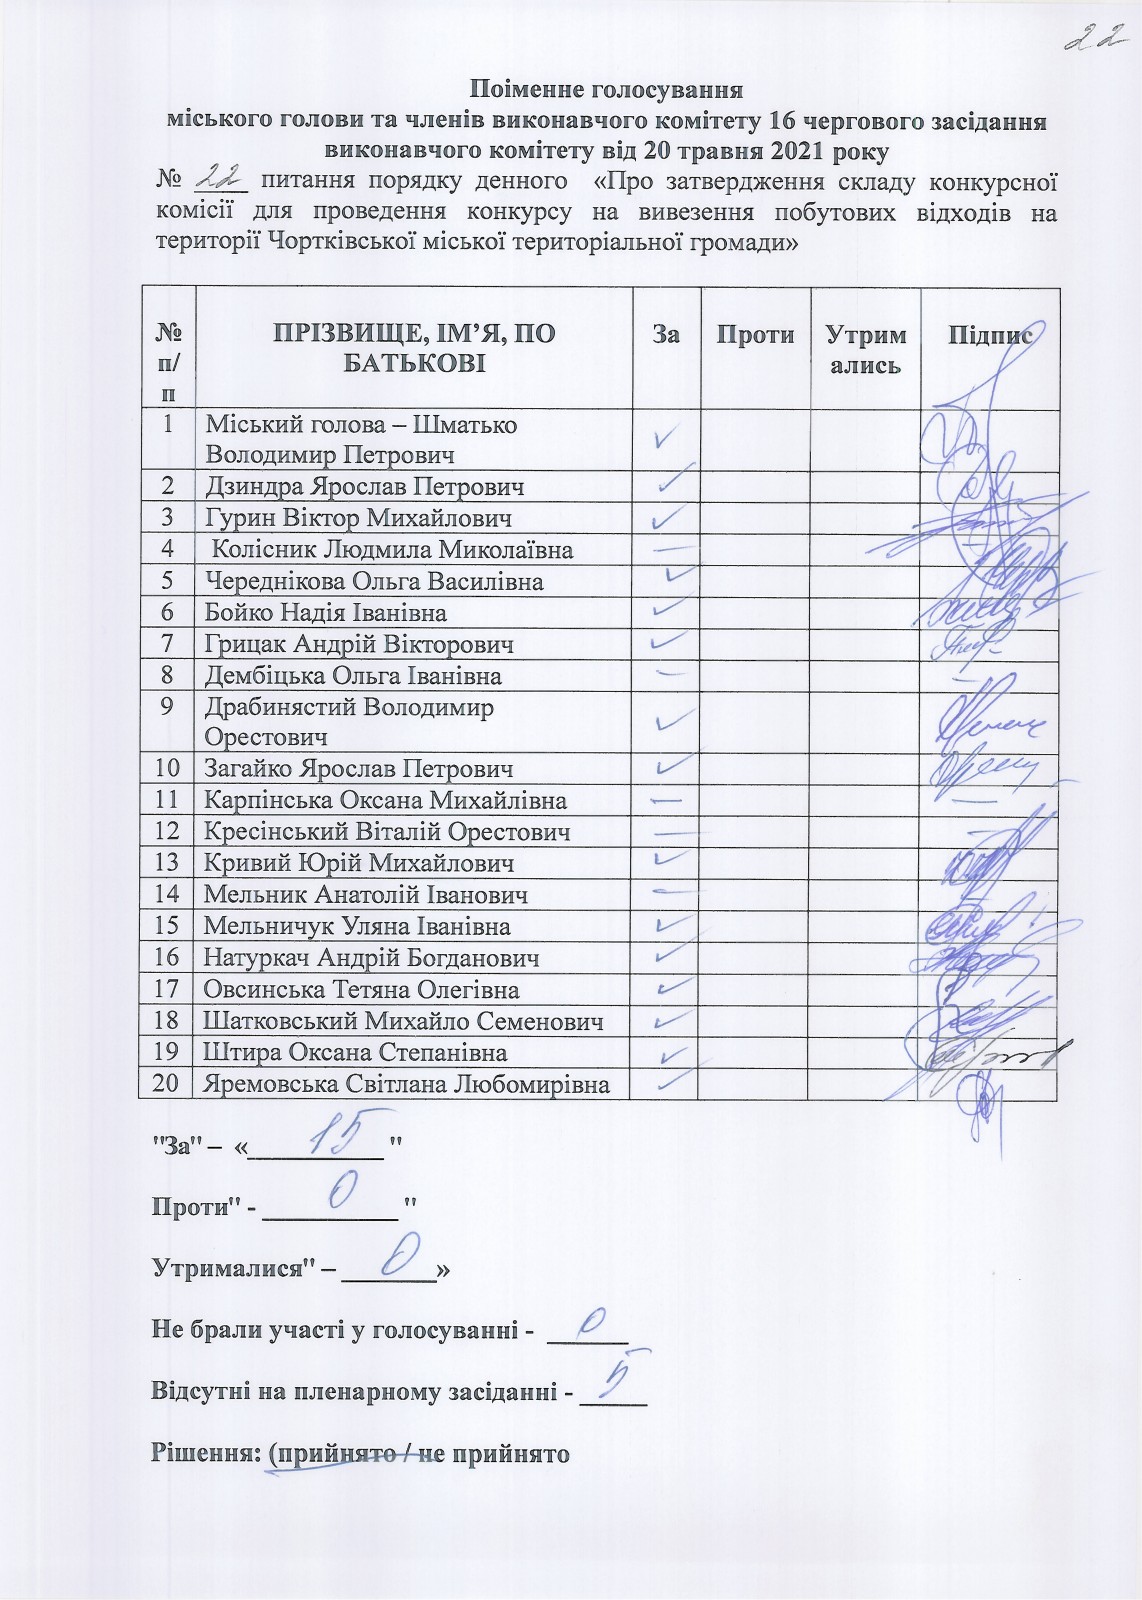 22
Поіменне голосування
міського голови та членів виконавчого комітету 16 чергового засідання
виконавчого комітету від 20 травня 2021 року
№ 22 питання порядку денного «Про затвердження складу конкурсної
комісії для проведення конкурсу на вивезення побутових відходів на
території Чортківської міської територіальної громади»
№ п/п ПРІЗВИЩЕ, ІМ’Я, ПО БАТЬКОВІ За Проти Утримались Підпис
1 Міський голова – Шматько
Володимир Петрович ✓
2 Дзиндра Ярослав Петрович ✓
3 Гурин Віктор Михайлович ✓
4 Колісник Людмила Миколаївна — –
5 Череднікова Ольга Василівна ✓
6 Бойко Надія Іванівна ✓
7 Грицак Андрій Вікторович ✓
8 Дембіцька Ольга Іванівна — –
9 Драбинястий Володимир
Орестович ✓
10 Загайко Ярослав Петрович ✓
11 Карпінська Оксана Михайлівна — —
12 Кресінський Віталій Орестович — –
13 Кривий Юрій Михайлович ✓
14 Мельник Анатолій Іванович — –
15 Мельничук Уляна Іванівна ✓
16 Натуркач Андрій Богданович ✓
17 Овсинська Тетяна Олегівна ✓
18 Шатковський Михайло Семенович ✓
19 Штира Оксана Степанівна ✓
20 Яремовська Світлана Любомирівна ✓
"За" – «15"
Проти" - 0"
Утрималися" – 0»
Не брали участі у голосуванні - 0
Відсутні на пленарному засіданні - 5
Рішення: (прийнято / не прийнято